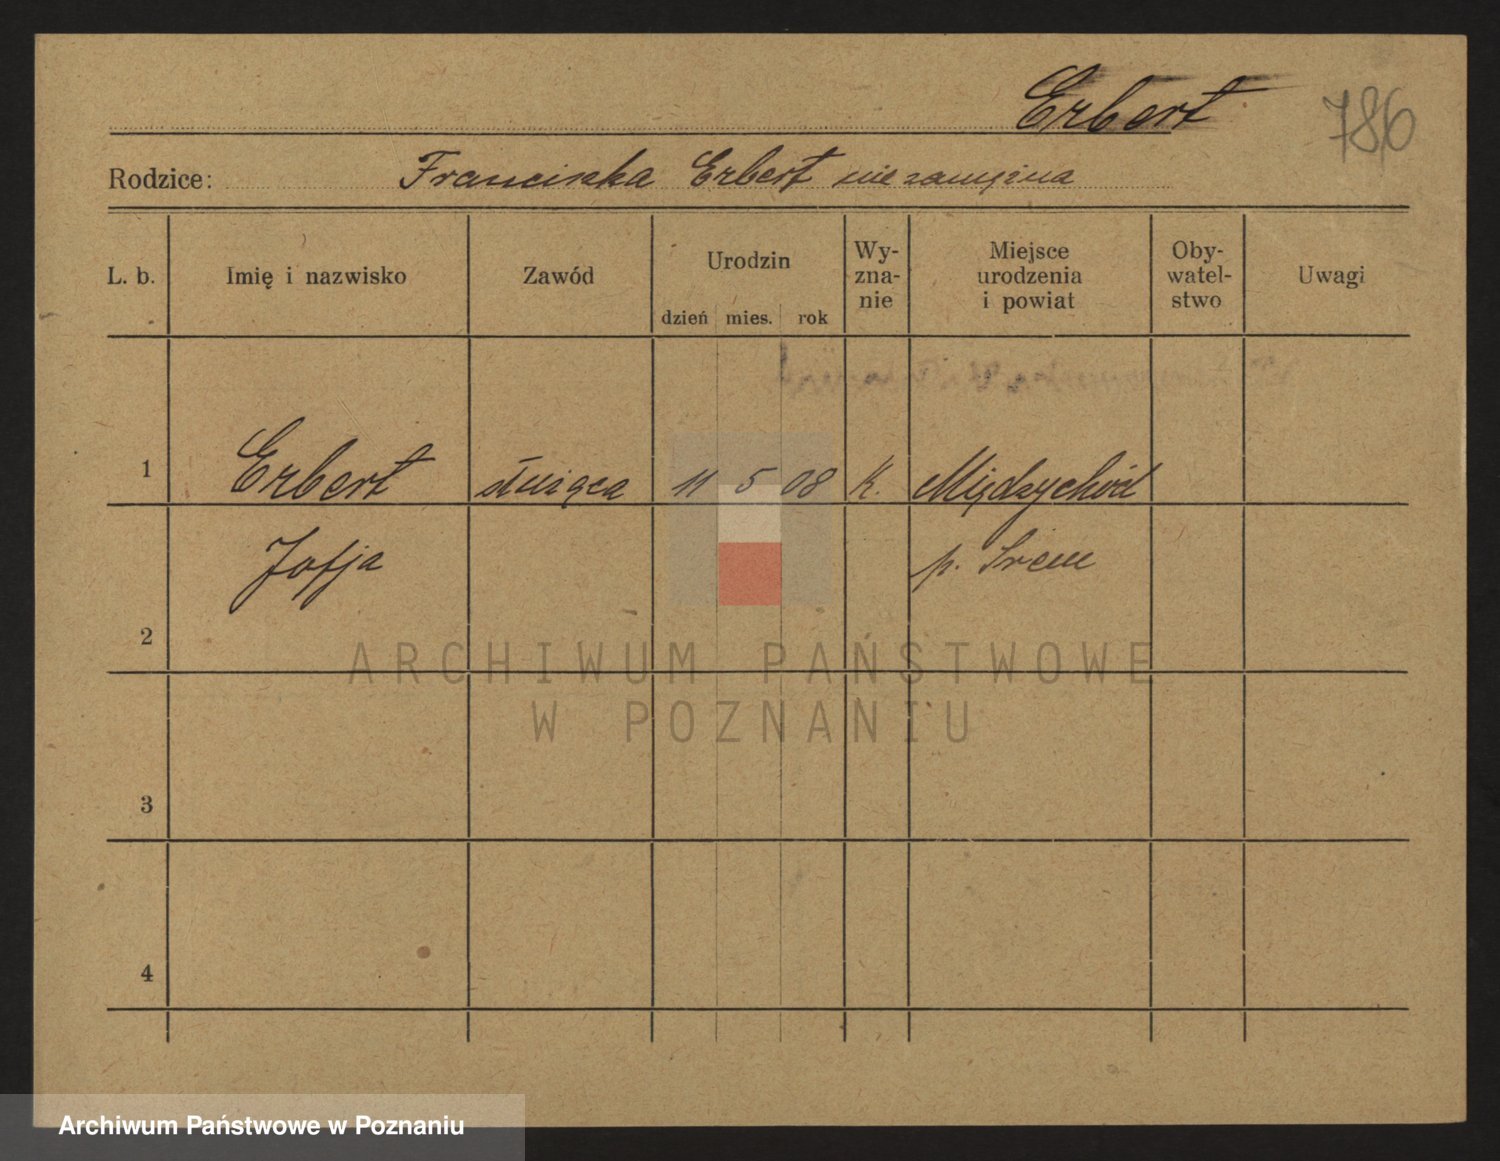 Erbert
786
Rodzice: Franciszka Erbert niezamężna
L. b. Imię i nazwisko Zawód Urodzin dzień mies. rok Wy-zna-nie Miejsce urodzenia i powiat Oby-watel-stwo Uwagi
1 Erbert służąca 11 5 08 k. Międzychód
Zofja p. Śrem
2
3
4
ARCHIWUM PAŃSTWOWE
W POZNANIU
Archiwum Państwowe w Poznaniu